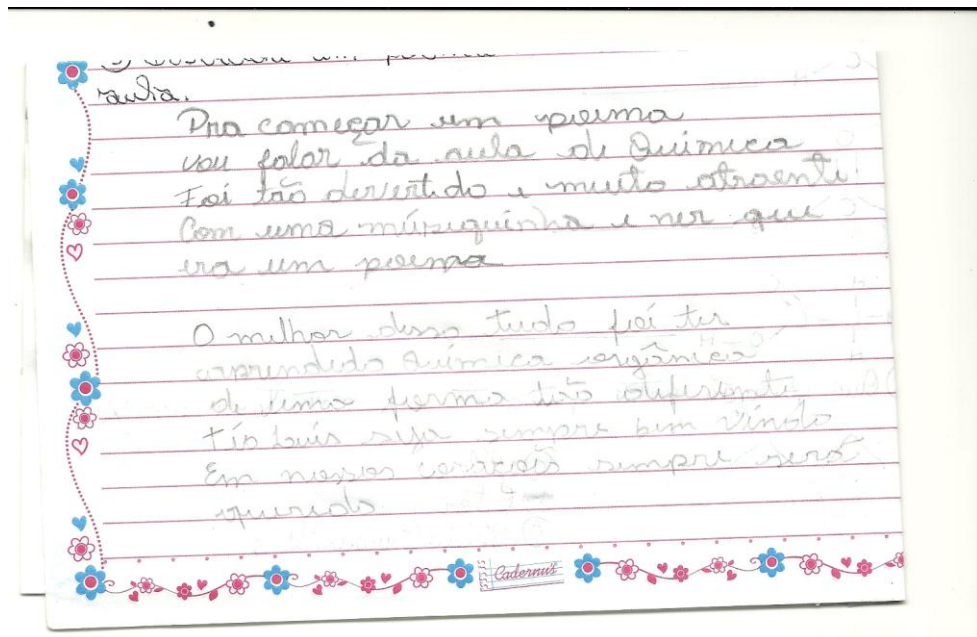 um poema
aula.
Pra começar um poema
vou falar da aula de Química
Foi tão divertido e muito atraente
Com uma músiquinha e ner que
era um poema
O melhor disso tudo foi ter
aprendido Química orgânica
de uma forma tão diferente
tio Luís seja sempre bem Vindo
Em nossos corações sempre será
querido
Cadernus